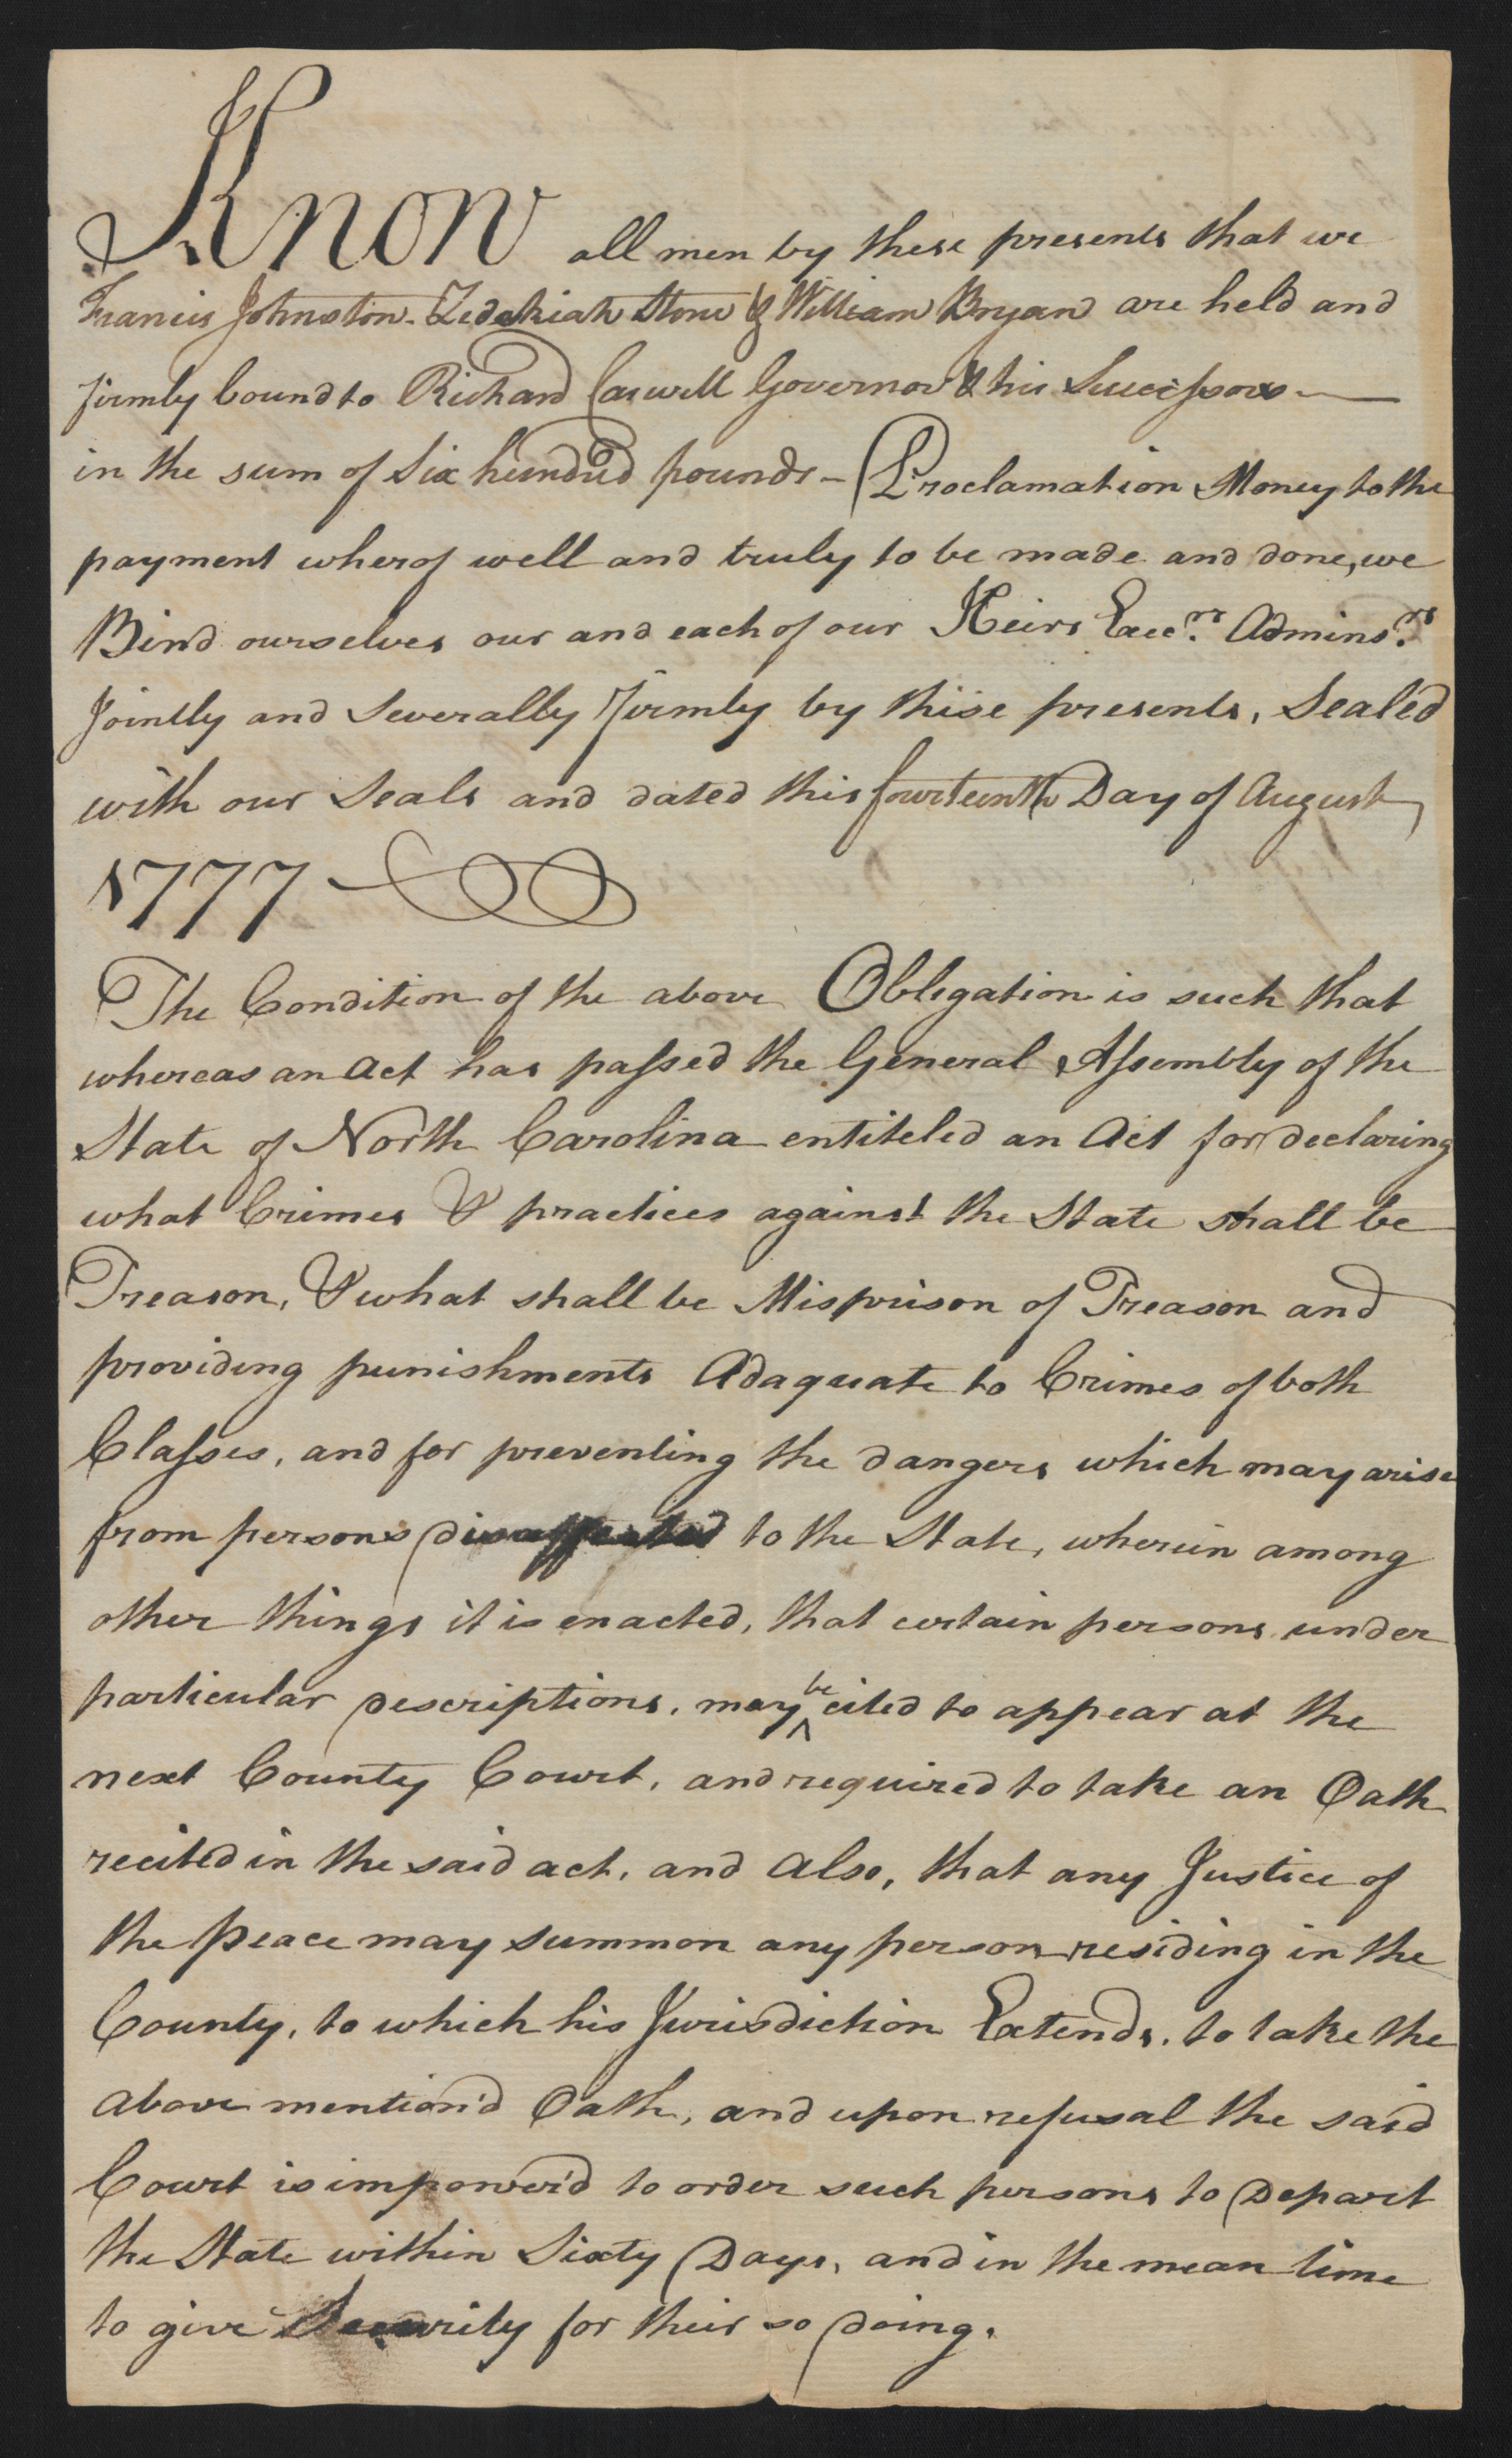 Know all men by these presents that we
Francis Johnston. Zedekiah Stone & William Bryan are held and
firmly bound to Richard Caswell Governor & his Successors
in the sum of Six hundred pounds - Proclamation Money to the
payment wherof well and truly to be made and done, we
Bind ourselves our and each of our Heirs Exec.rs Admins.rs
Jointly and Severally firmly by these presents, Sealed
with our Seals and dated this fourteenth Day of August
1777
The Condition of the above Obligation is such that
whereas an Act has passed the General Assembly of the
State of North Carolina entiteled an Act for declaring
what Crimes & practices against the State shall be
Treason, & what shall be Misprison of Treason and
providing punishments Adaquate to Crimes of both
Classes, and for preventing the dangers which may arise
from persons disaffected to the State, wherein among
other things it is enacted, that certain persons under
particular Descriptions, may be cited to appear at the
next County Court, and required to take an Oath
recited in the said act, and also, that any Justice of
the Peace may summon any person residing in the
County, to which his Jurisdiction Extends, to take the
above mention'd Oath, and upon refusal the said
Court is impower'd to order such persons to Depart
the State within Sixty Days, and in the mean time
to give Security for their so doing.